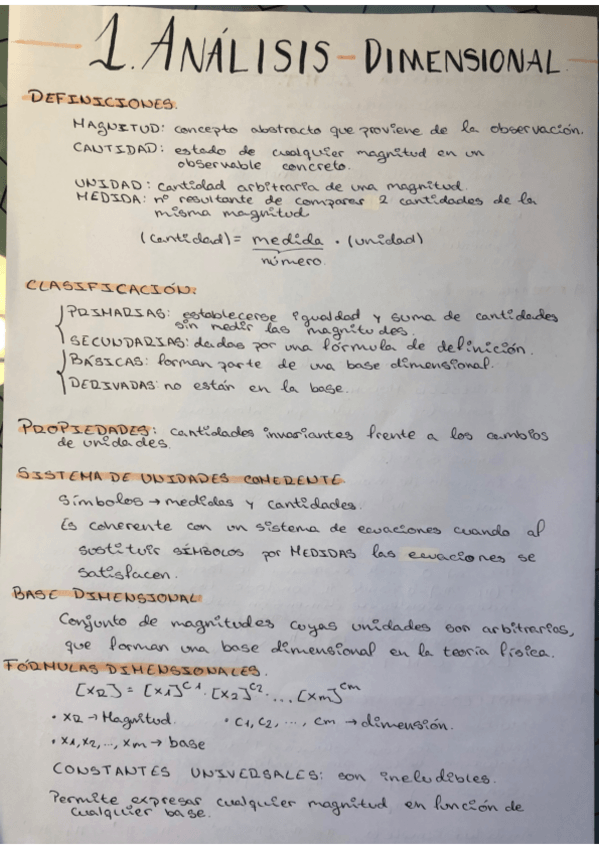 1. ANÁLISIS - DIMENSIONAL
DEFINICIONES:
MAGNITUD: concepto abstracto que proviene de la observación.
CANTIDAD: estado de cualquier magnitud en un
observable concreto.
UNIDAD: cantidad arbitraria de una magnitud.
MEDIDA: nº resultante de comparar 2 cantidades de la
misma magnitud
(cantidad) = medida · (unidad)
número
CLASIFICACIÓN:
PRIMARIAS: establecerse igualdad y suma de cantidades
sin medir las magnitudes.
SECUNDARIAS: dadas por una fórmula de definición.
BÁSICAS: forman parte de una base dimensional.
DERIVADAS: no están en la base.
PROPIEDADES: cantidades invariantes frente a los cambios
de unidades.
SISTEMA DE UNIDADES COHERENTE
Símbolos → medidas y cantidades.
Es coherente con un sistema de ecuaciones cuando al
sustituir SÍMBOLOS por MEDIDAS las ecuaciones se
satisfacen.
BASE DIMENSIONAL
Conjunto de magnitudes cuyas unidades son arbitrarias,
que forman una base dimensional en la teoría física.
FÓRMULAS DIMENSIONALES.
[XR] = [X1]^C1 · [X2]^C2 · ... [Xm]^Cm
• XR → Magnitud. • C1, C2, ..., Cm → dimensión.
• X1, X2, ..., Xm → base
CONSTANTES UNIVERSALES: son ineludibles.
Permite expresar cualquier magnitud en función de
cualquier base.